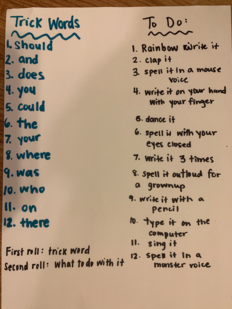 Trick Words
1. should
2. and
3. does
4. you
5. could
6. the
7. your
8. where
9. was
10. who
11. on
12. there
First roll: trick word
Second roll: What to do with it
To Do:
1. Rainbow write it
2. clap it
3. spell it in a mouse
voice
4. write it on your hand
with your finger
5. dance it
6. spell it with your
eyes closed
7. write it 3 times
8. spell it outloud for
a grownup
9. write it with a
pencil
10. type it on the
computer
11. sing it
12. spell it in a
monster voice